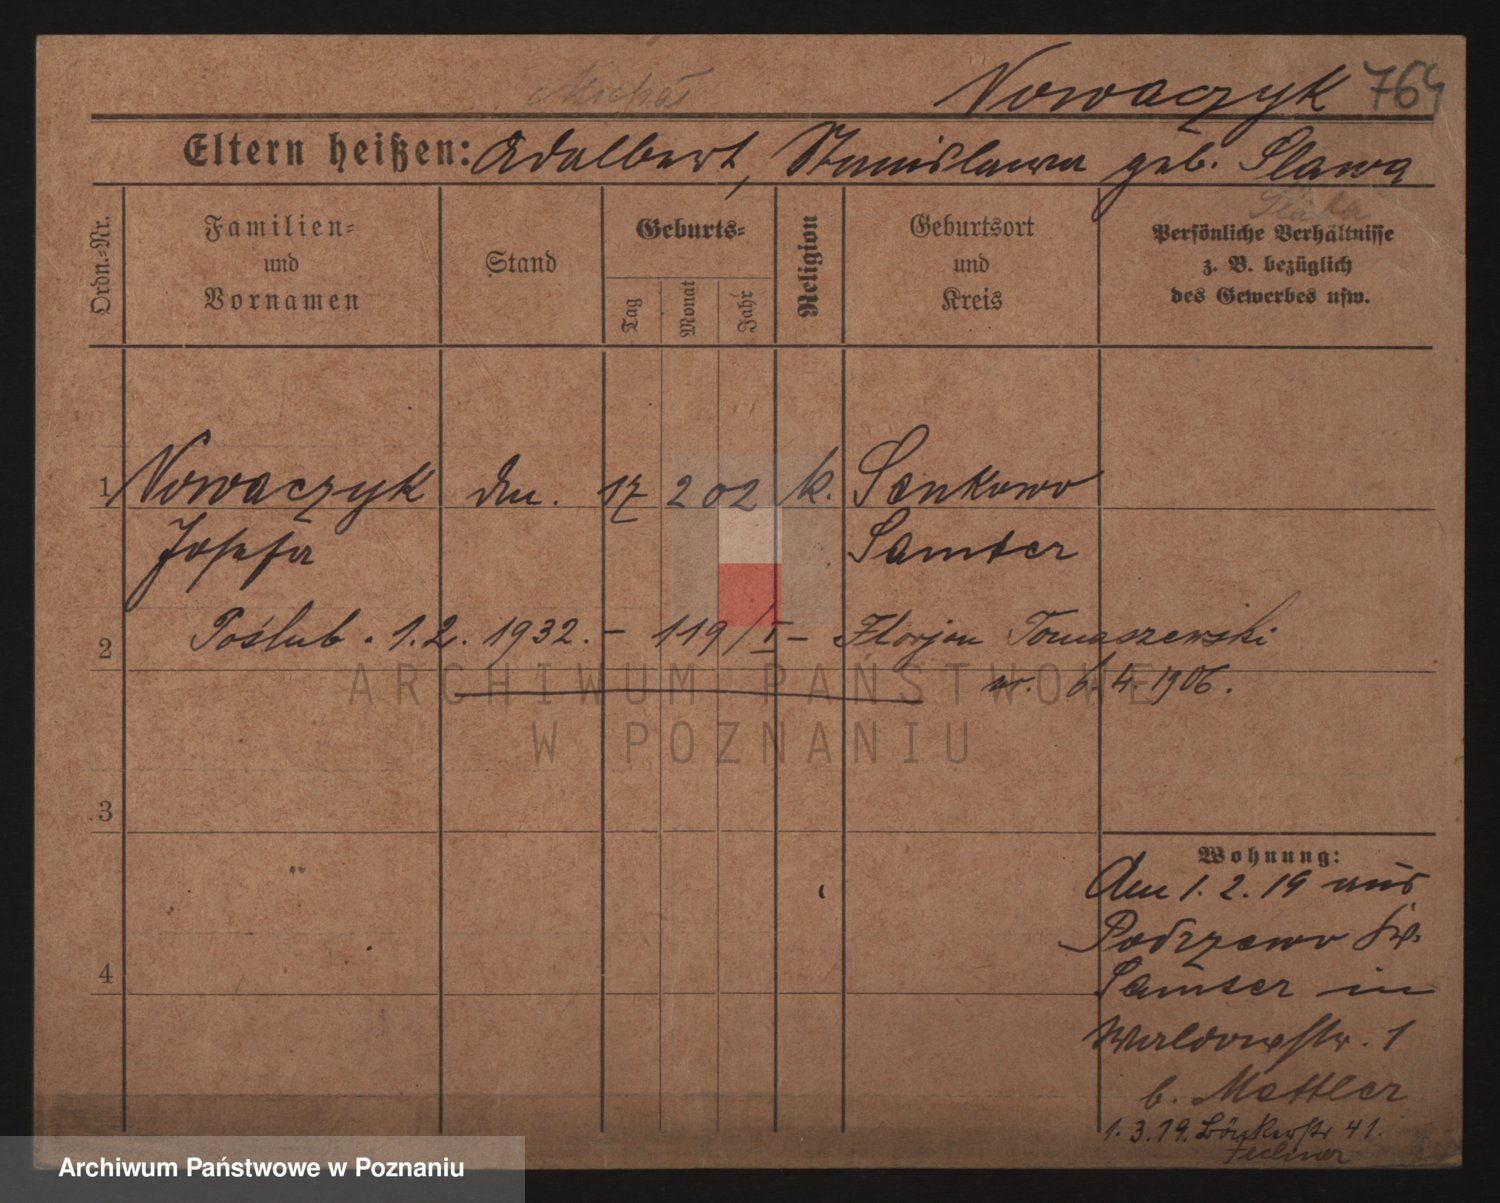 Michał
Nowaczyk 764
Eltern heißen: Adalbert, Stanislawa geb. Slawa
Ordn.-Nr.
Familien-
und
Vornamen
Stand
Geburts-
Tag
Monat
Jahr
Religion
Geburtsort
und
Kreis
Persönliche Verhältnisse
z. B. bezüglich
des Gewerbes usw.
1 Nowaczyk 17 2 02 k. Senkowo
Josefa Samter
2 Poślub. 1.2. 1932. – 119/I – Florjan Tomaszewski
ur. 6.4.1906.
3
4
Wohnung:
Am 1.2.19 aus
Podrzewo Kr.
Samter in
Waldowstr. 1
b. Mettler
1.3.19. 41.
Fechner
ARCHIWUM PAŃSTWOWE
W POZNANIU
Archiwum Państwowe w Poznaniu